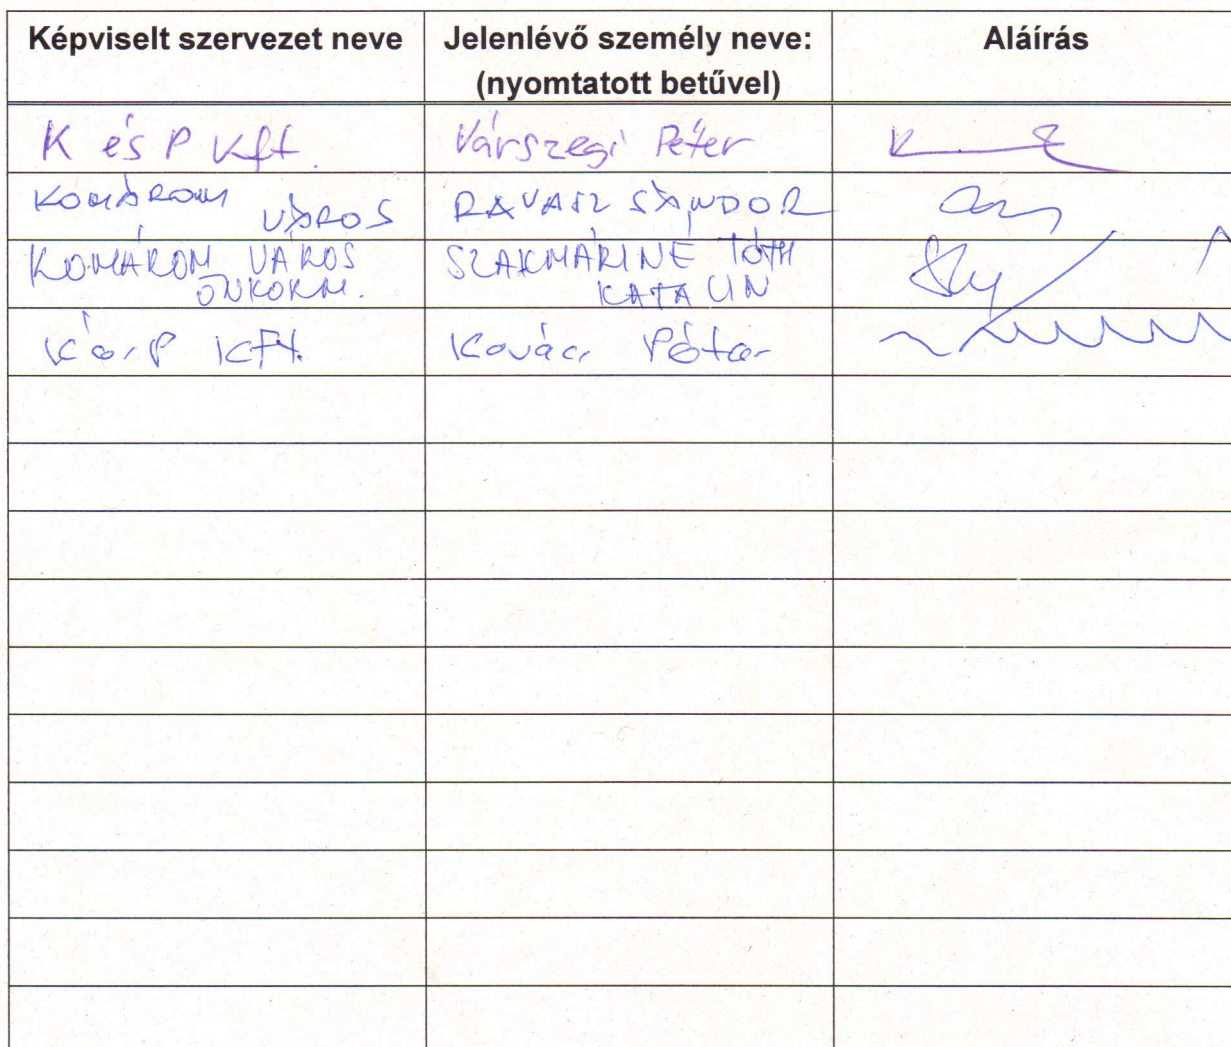 Képviselt szervezet neve
Jelenlévő személy neve:
(nyomtatott betűvel)
Aláírás
K és P Kft.
Várszegi Péter
KOMÁROM VÁROS
RAVASZ SÁNDOR
KOMÁROM VÁROS
ÖNKORM.
SZAKMÁRINÉ TÓTH
KATALIN
K és P Kft.
Kovács Péter